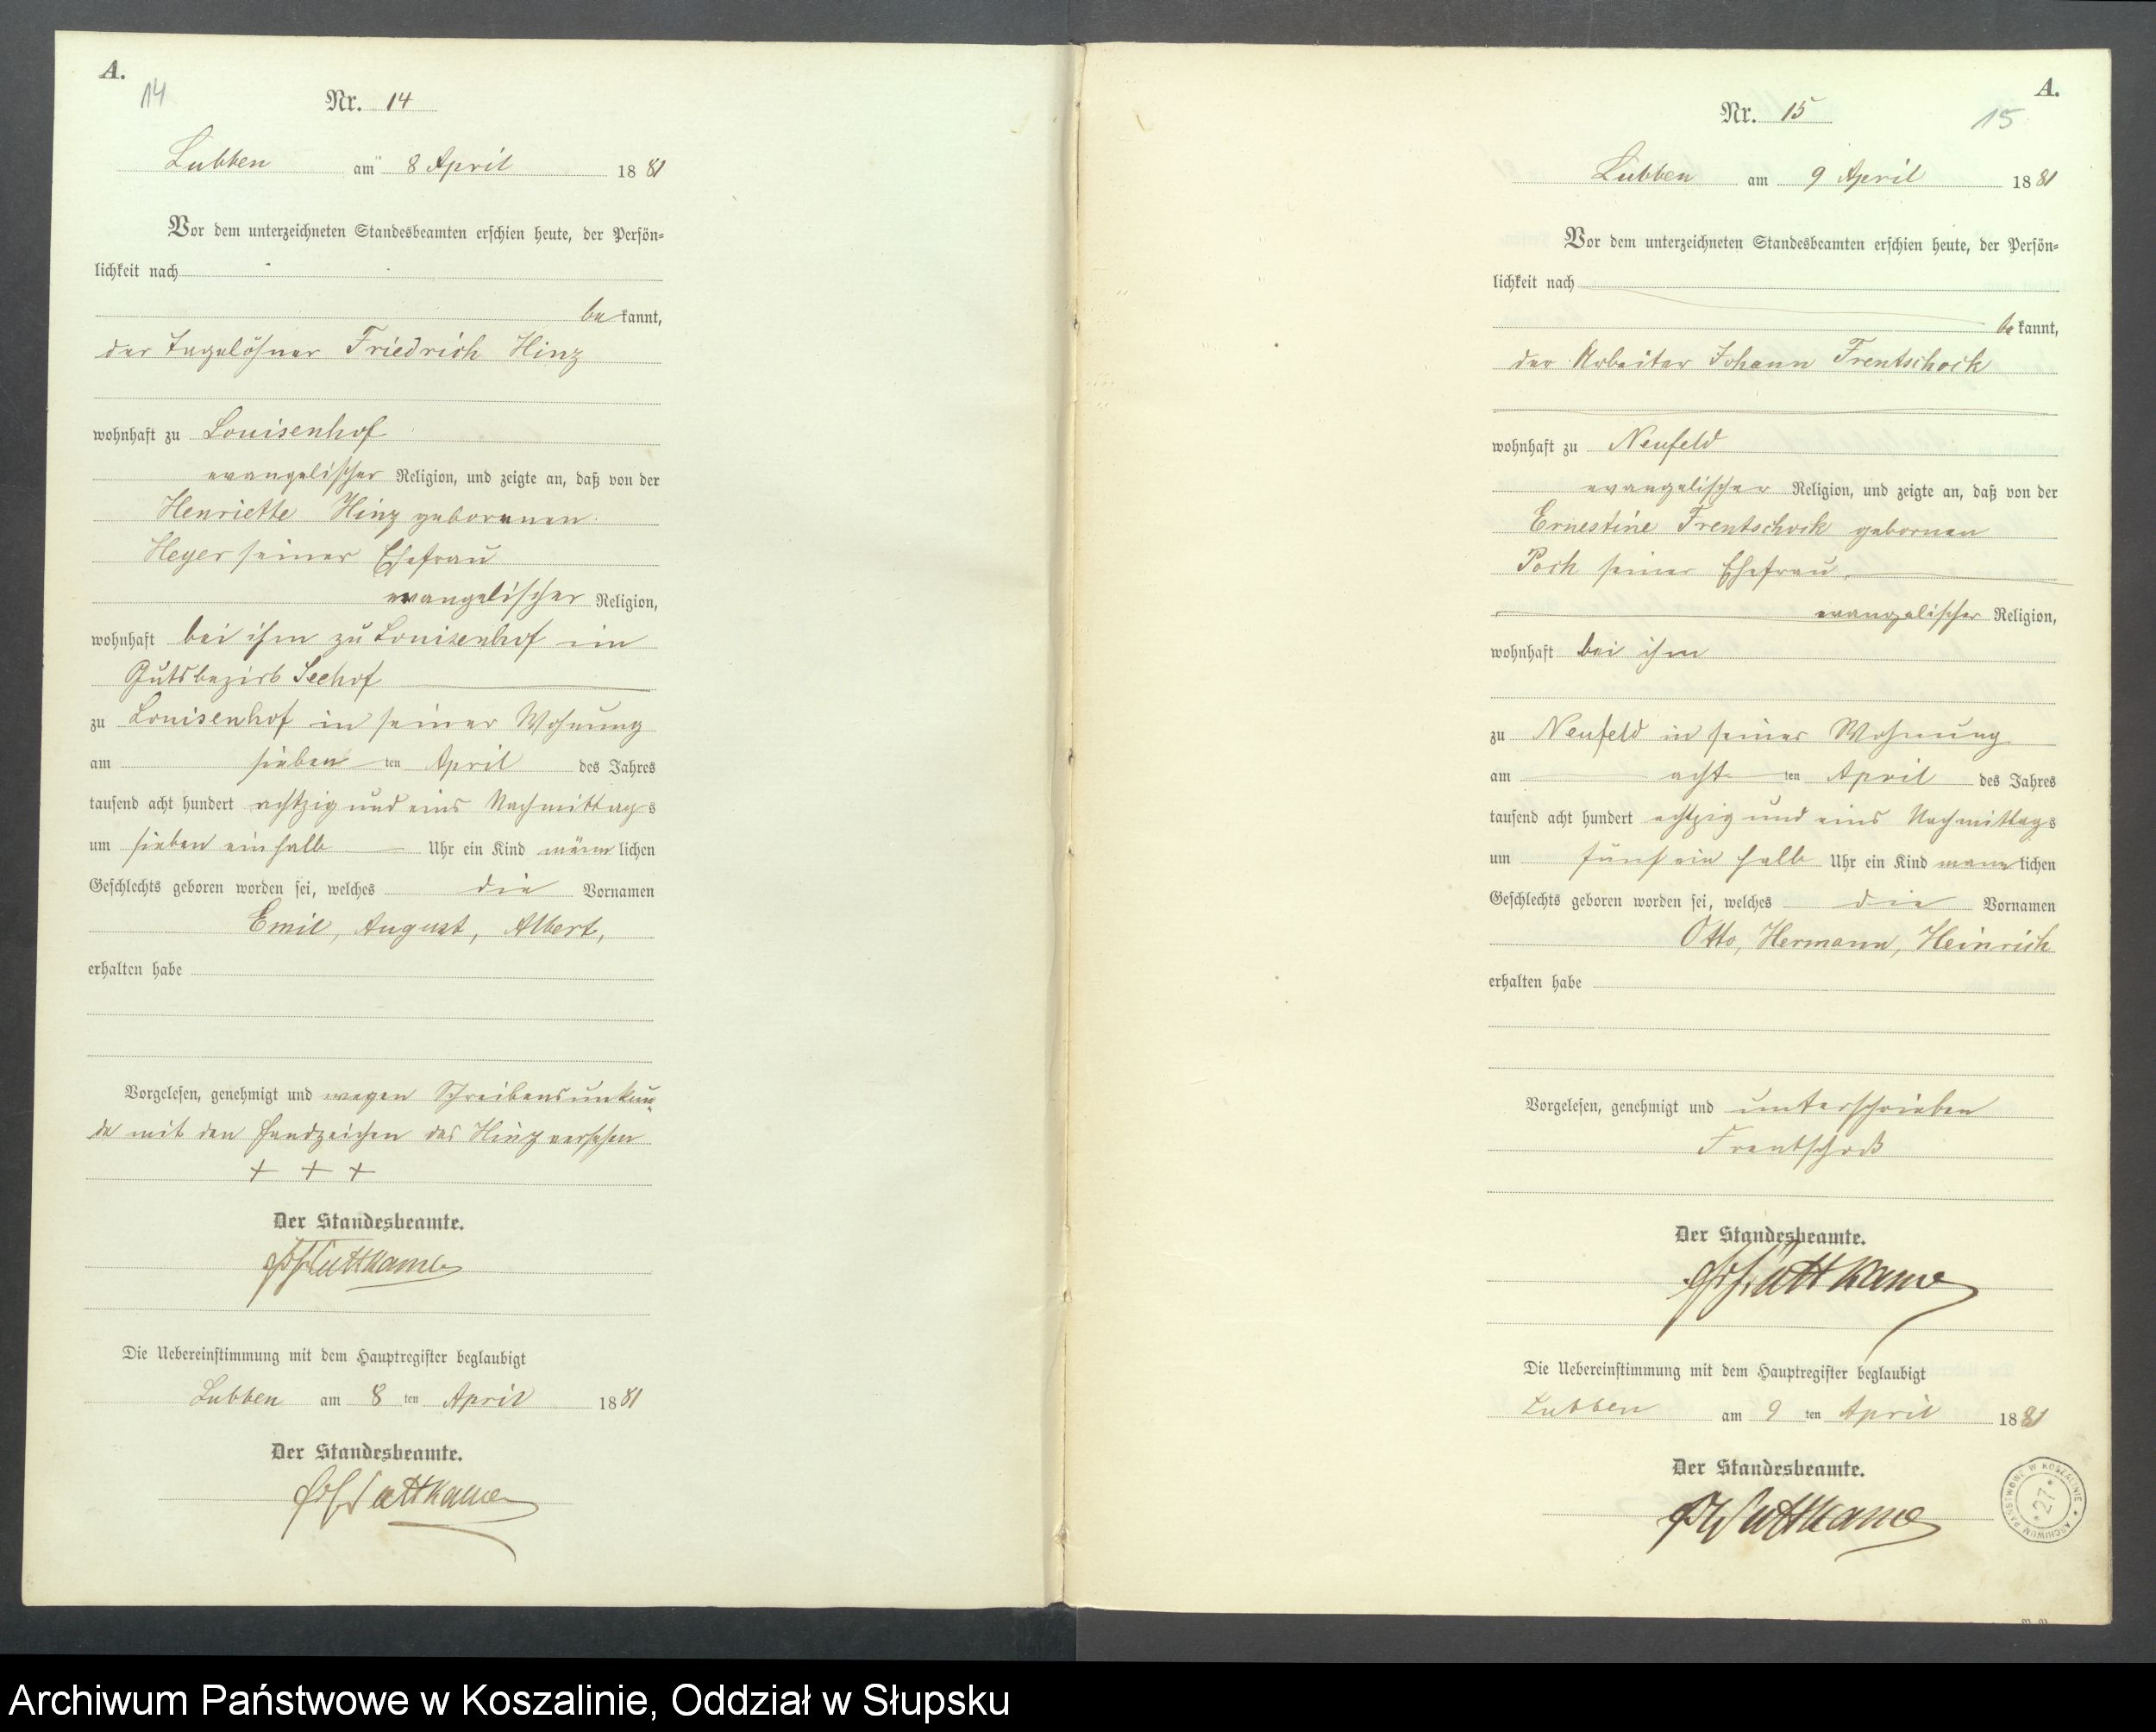 A.
14
Nr. 14
Lubben am 8 April 1881
Vor dem unterzeichneten Standesbeamten erschien heute, der Persön=
lichkeit nach
be kannt,
der Tagelöhner Friedrich Hinz
wohnhaft zu Louisenhof
evangelischer Religion, und zeigte an, daß von der
Henriette Hinz geborenen
Heyer seiner Ehefrau
evangelischer Religion,
wohnhaft bei ihm zu Louisenhof im
Gutsbezirk Seehof
zu Louisenhof in seiner Wohnung
am sieben ten April des Jahres
tausend acht hundert achtzig und eins Nachmittags
um sieben einhalb Uhr ein Kind männlichen
Geschlechts geboren worden sei, welches die Vornamen
Emil, August, Albert,
erhalten habe
Vorgelesen, genehmigt und wegen Schreibensunkun
de mit den Handzeichen des Hinz versehen
+ + +
Der Standesbeamte.
Puttkamer
Die Uebereinstimmung mit dem Hauptregister beglaubigt
Lubben am 8 ten April 1881
Der Standesbeamte.
Puttkamer
A.
15
Nr. 15
Lubben am 9 April 1881
Vor dem unterzeichneten Standesbeamten erschien heute, der Persön=
lichkeit nach
be kannt,
der Arbeiter Johann Frentschock
wohnhaft zu Neufeld
evangelischer Religion, und zeigte an, daß von der
Ernestine Frentschock gebornen
Poch seiner Ehefrau
evangelischer Religion,
wohnhaft bei ihm
zu Neufeld in seiner Wohnung
am acht ten April des Jahres
tausend acht hundert achtzig und eins Nachmittags
um fünf ein halb Uhr ein Kind männlichen
Geschlechts geboren worden sei, welches die Vornamen
Otto, Hermann, Heinrich
erhalten habe
Vorgelesen, genehmigt und unterschrieben
Frentschock
Der Standesbeamte.
Puttkamer
Die Uebereinstimmung mit dem Hauptregister beglaubigt
Lubben am 9 ten April 1881
Der Standesbeamte.
Puttkamer
ARCHIWUM PAŃSTWOWE W KOSZALINIE * 27 *
Archiwum Państwowe w Koszalinie, Oddział w Słupsku